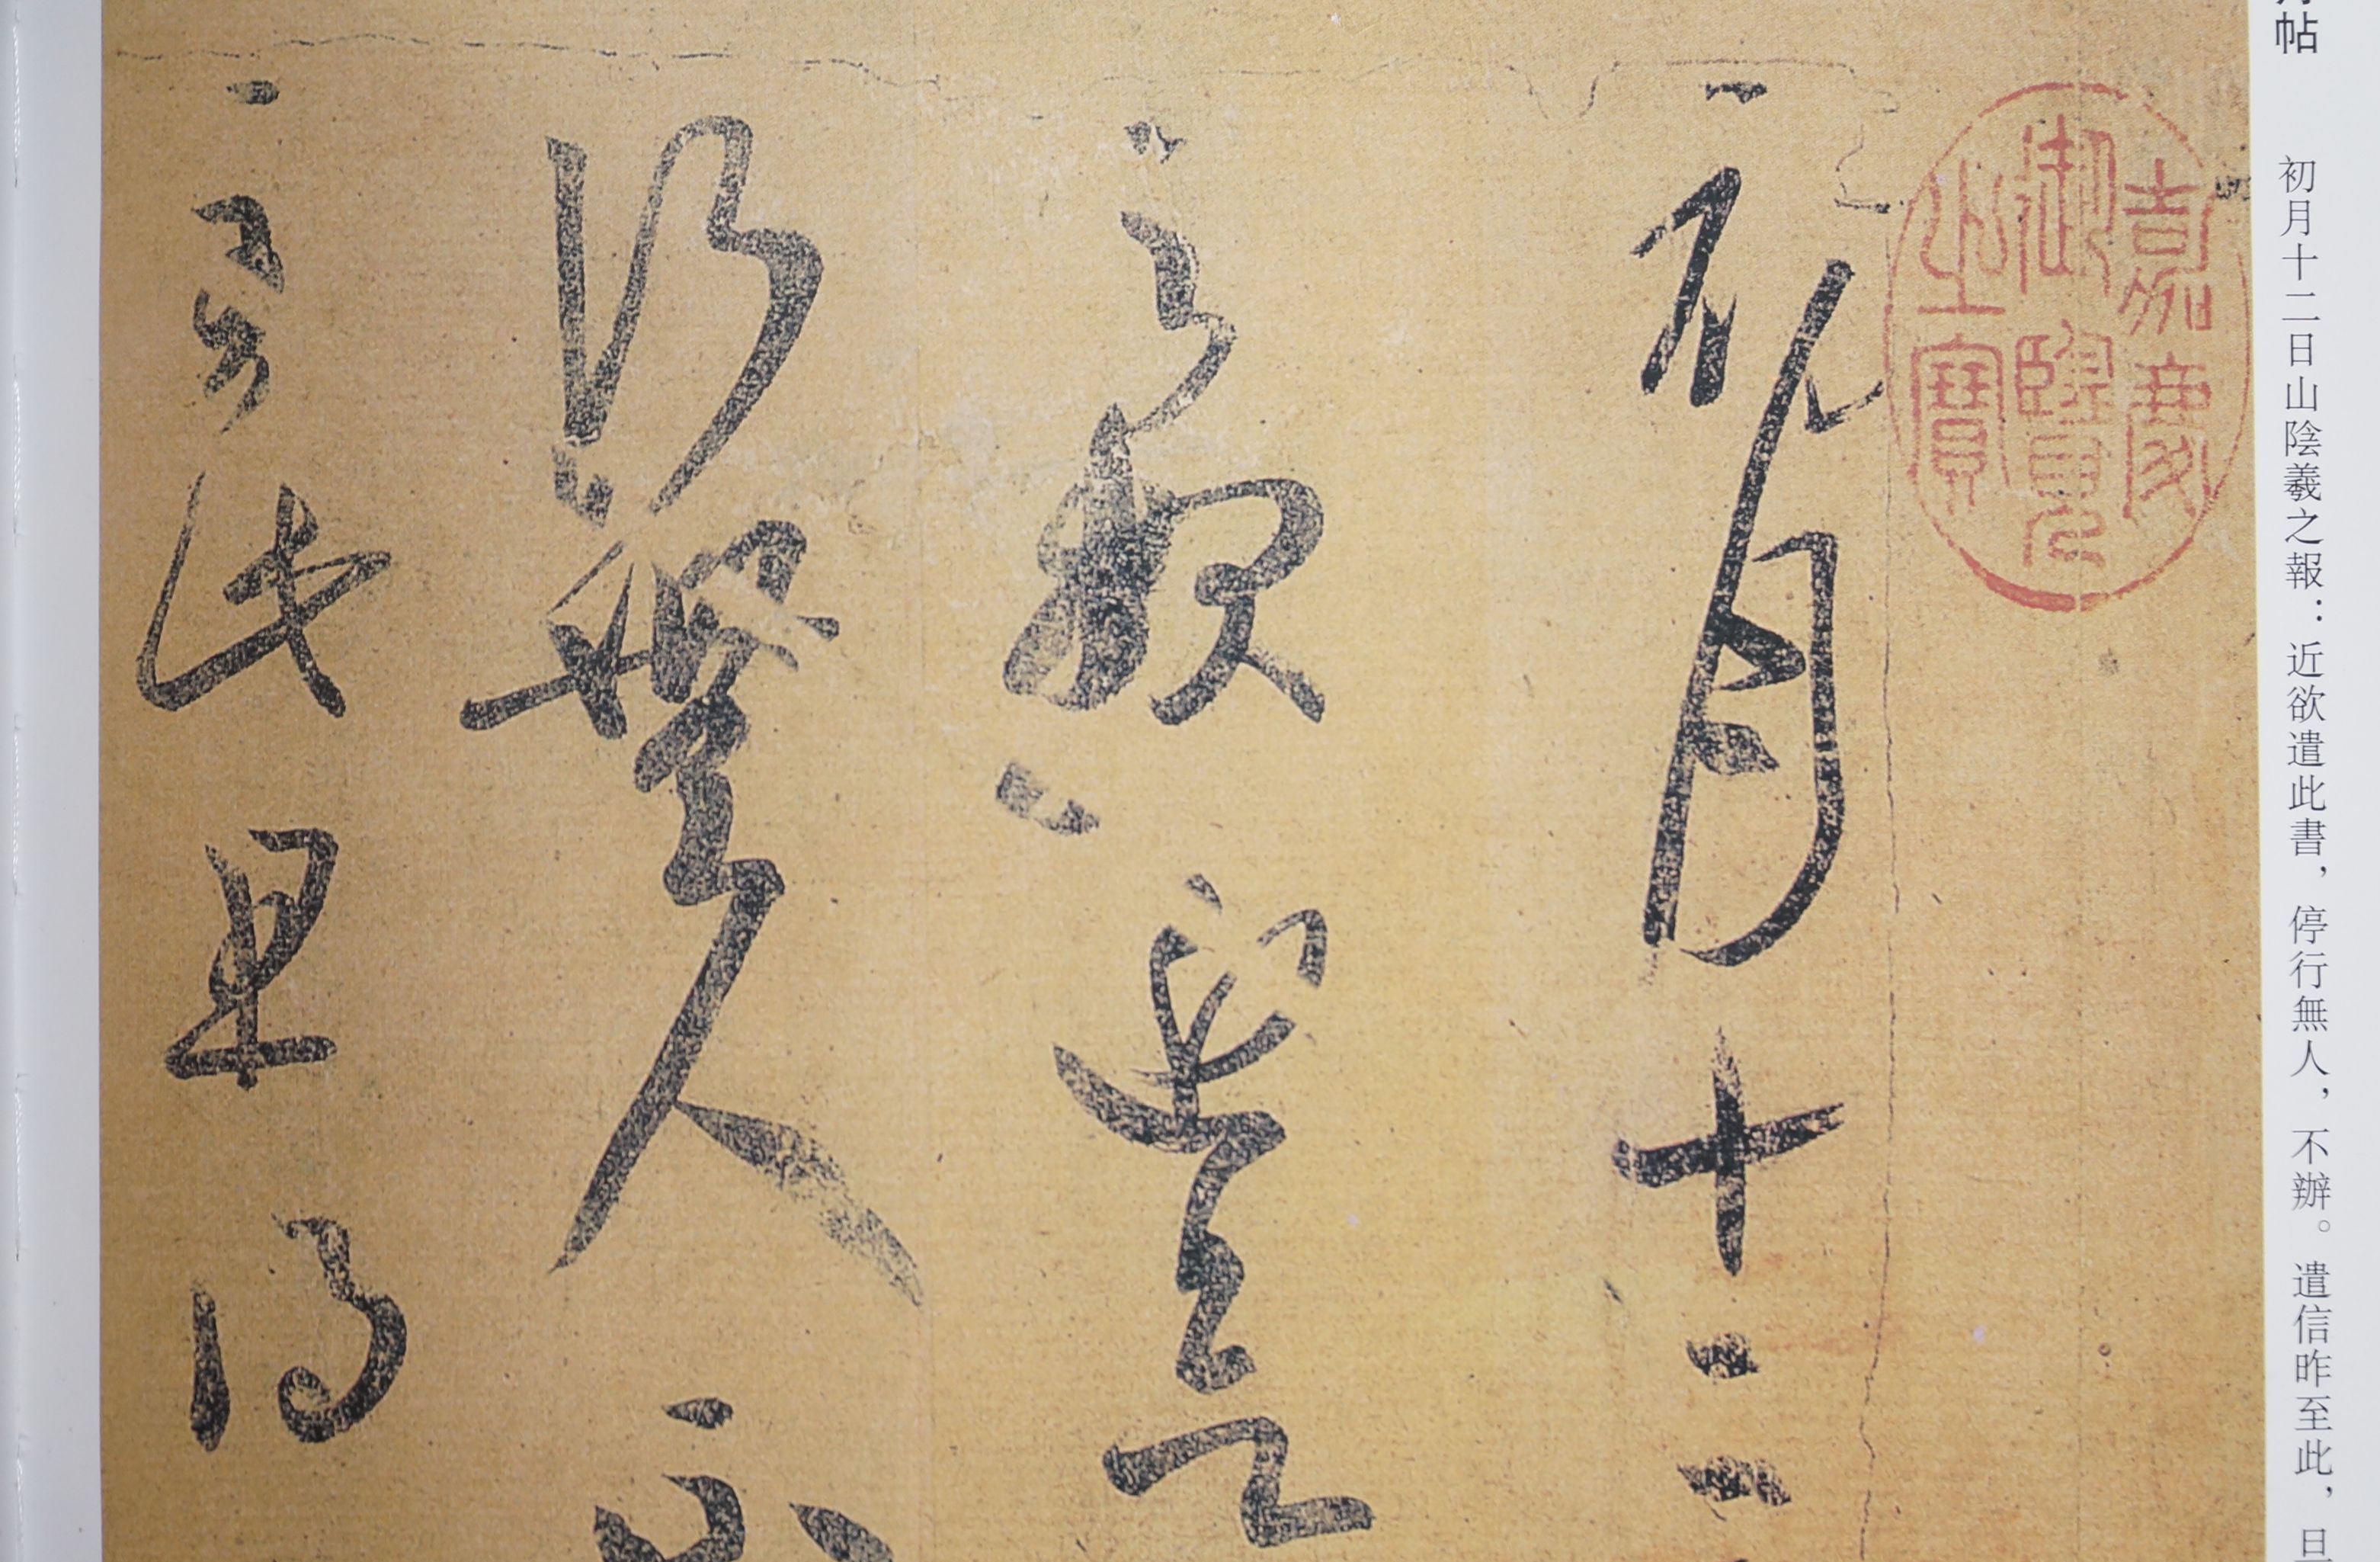 帖 初月十二日山陰羲之報：近欲遣此書，停行無人，不辦。遣信昨至此，
嘉慶
御覽
之寶
初月十二
近欲遣此
行無人不
至此且得